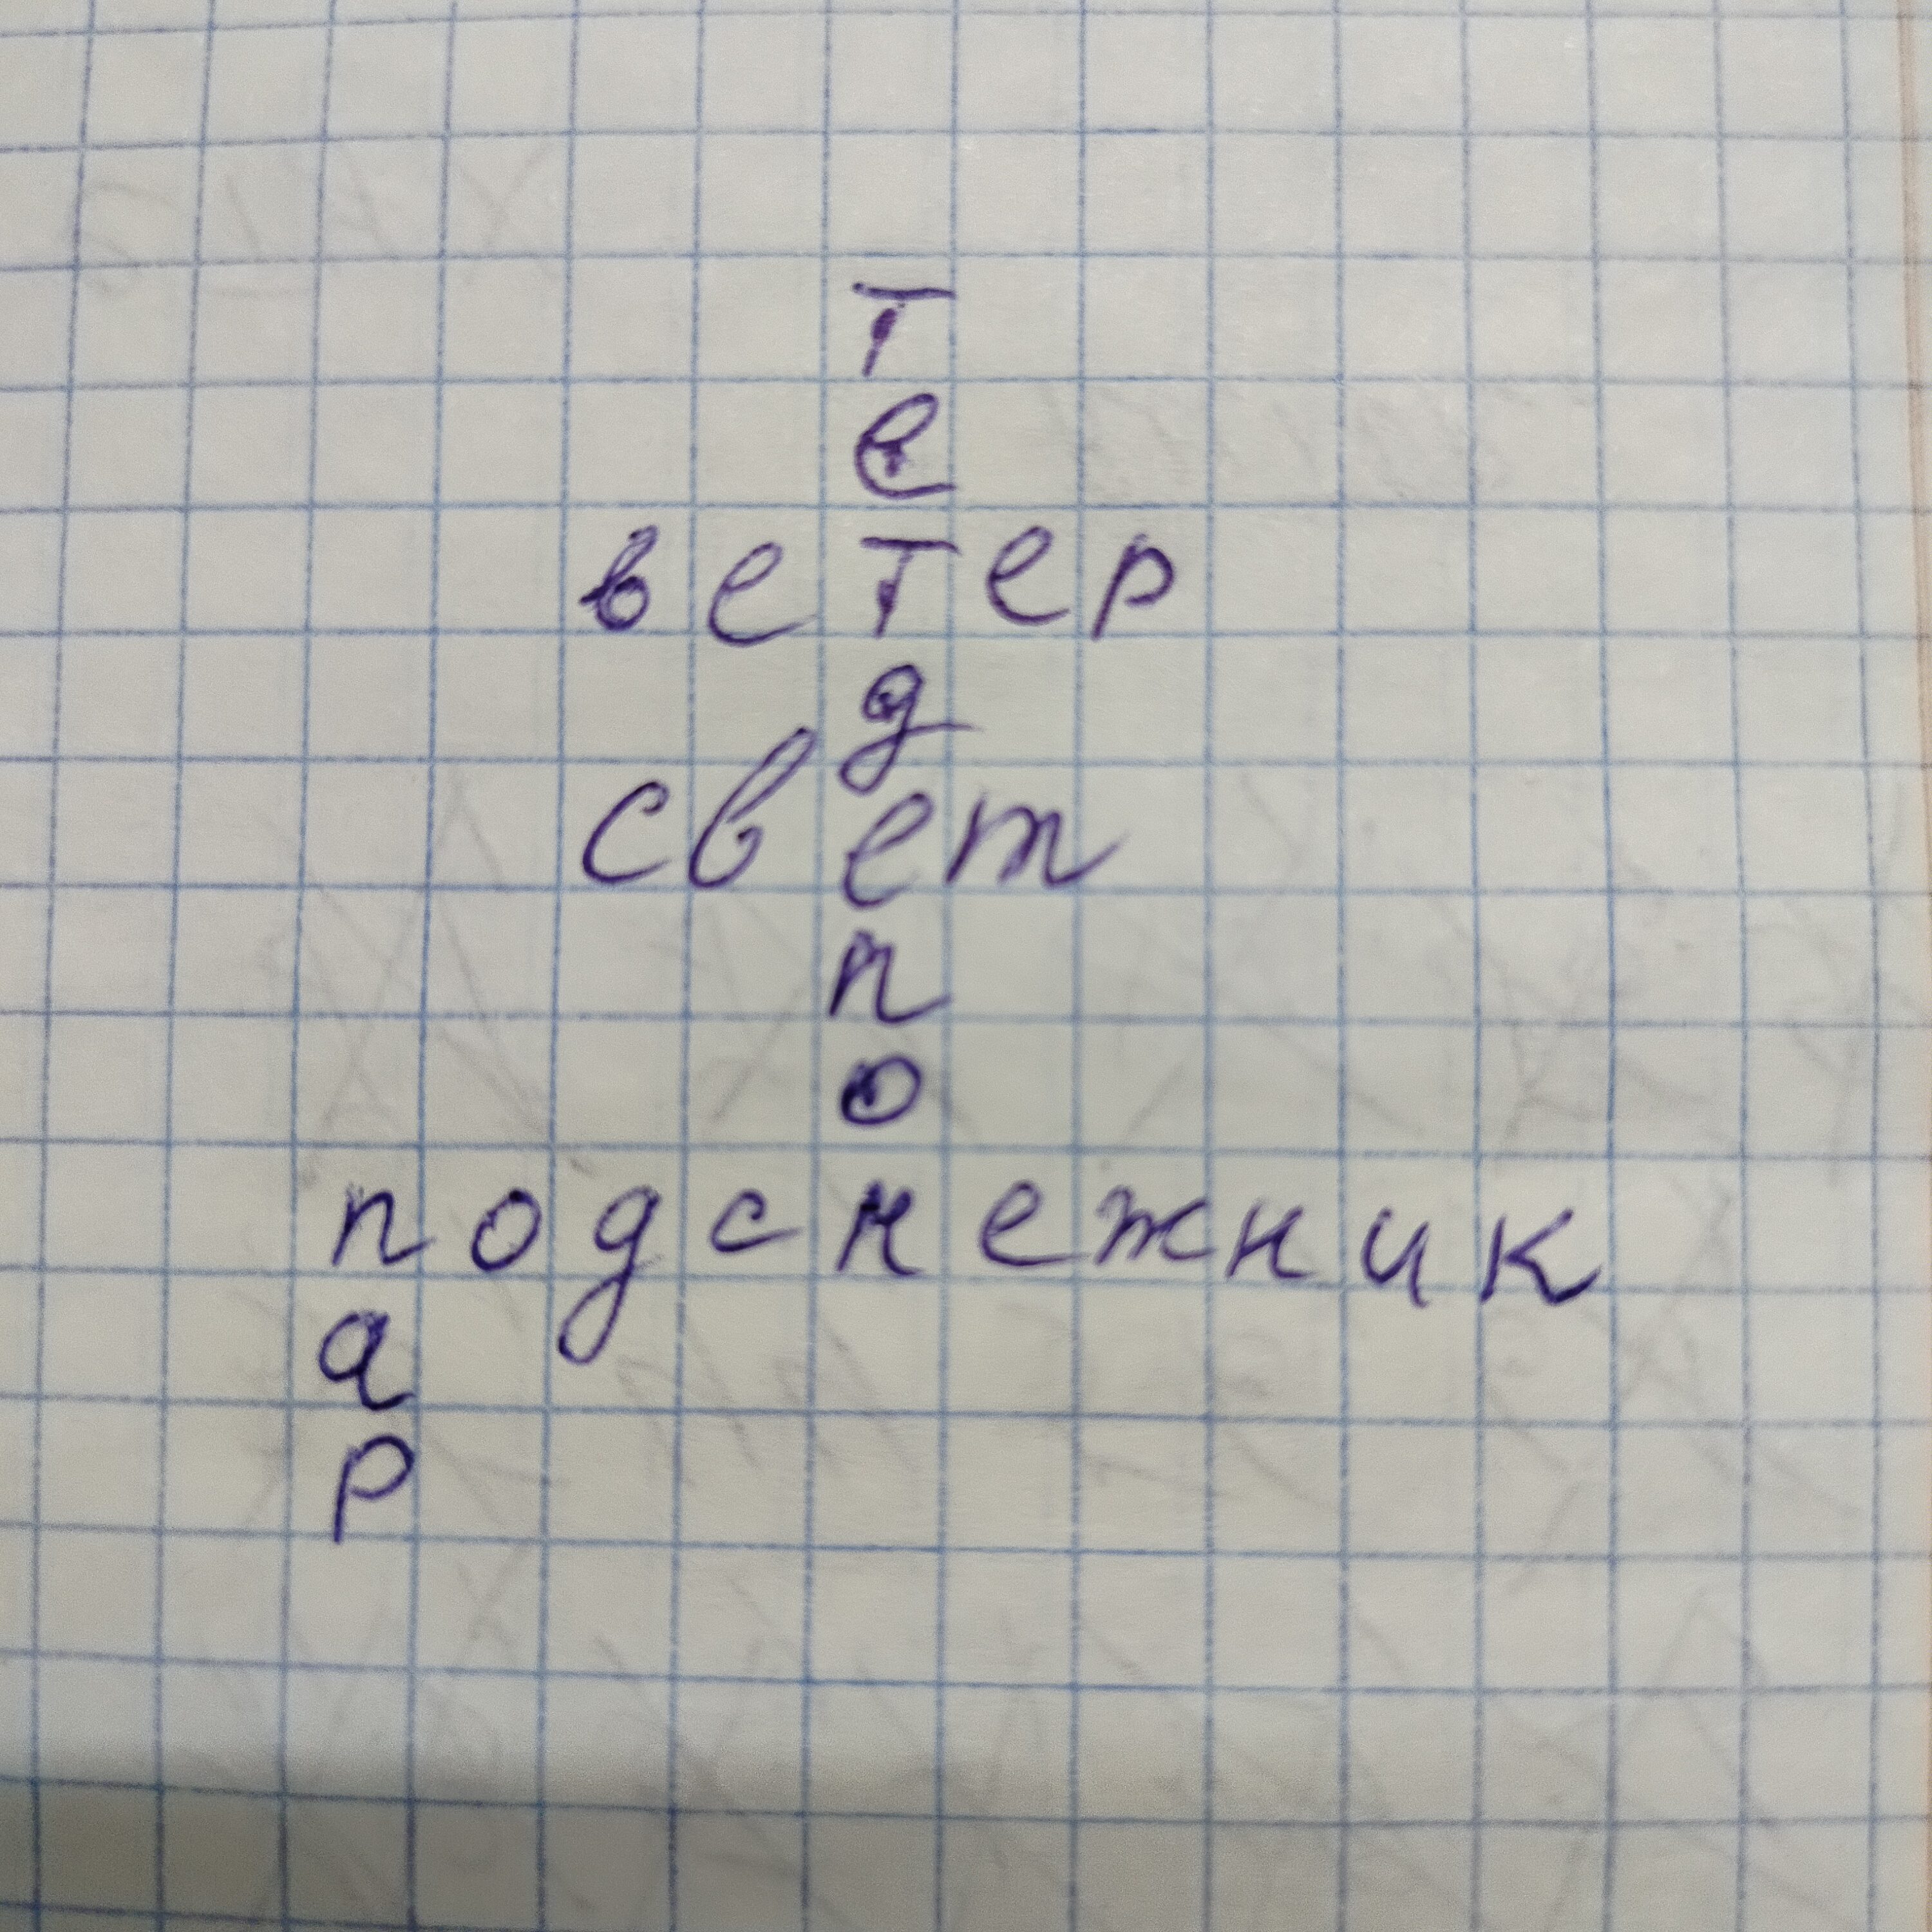 т
е
ветер
д
свет
п
о
подснежник
а
р